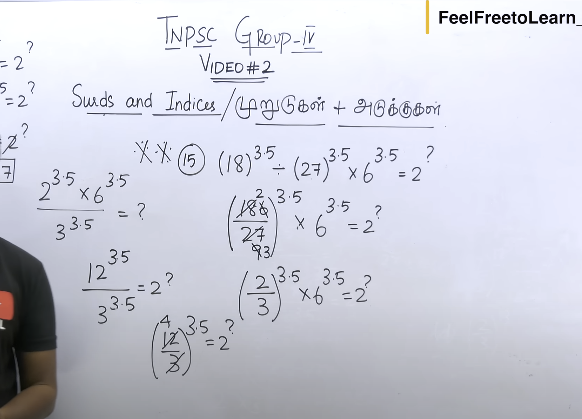 FeelFreetoLearn_
TNPSC GROUP-IV
VIDEO#2
Surds and Indices/முறுடுகள் + அடுக்குகள்
= 2^?
= 2^?
2^?
7
** 15 (18)^3.5 ÷ (27)^3.5 × 6^3.5 = 2^?
(18 6 2 / 27 9 3)^3.5 × 6^3.5 = 2^?
(2/3)^3.5 × 6^3.5 = 2^?
2^3.5 × 6^3.5 / 3^3.5 = ?
12^3.5 / 3^3.5 = 2^?
(4 12 / 3)^3.5 = 2^?